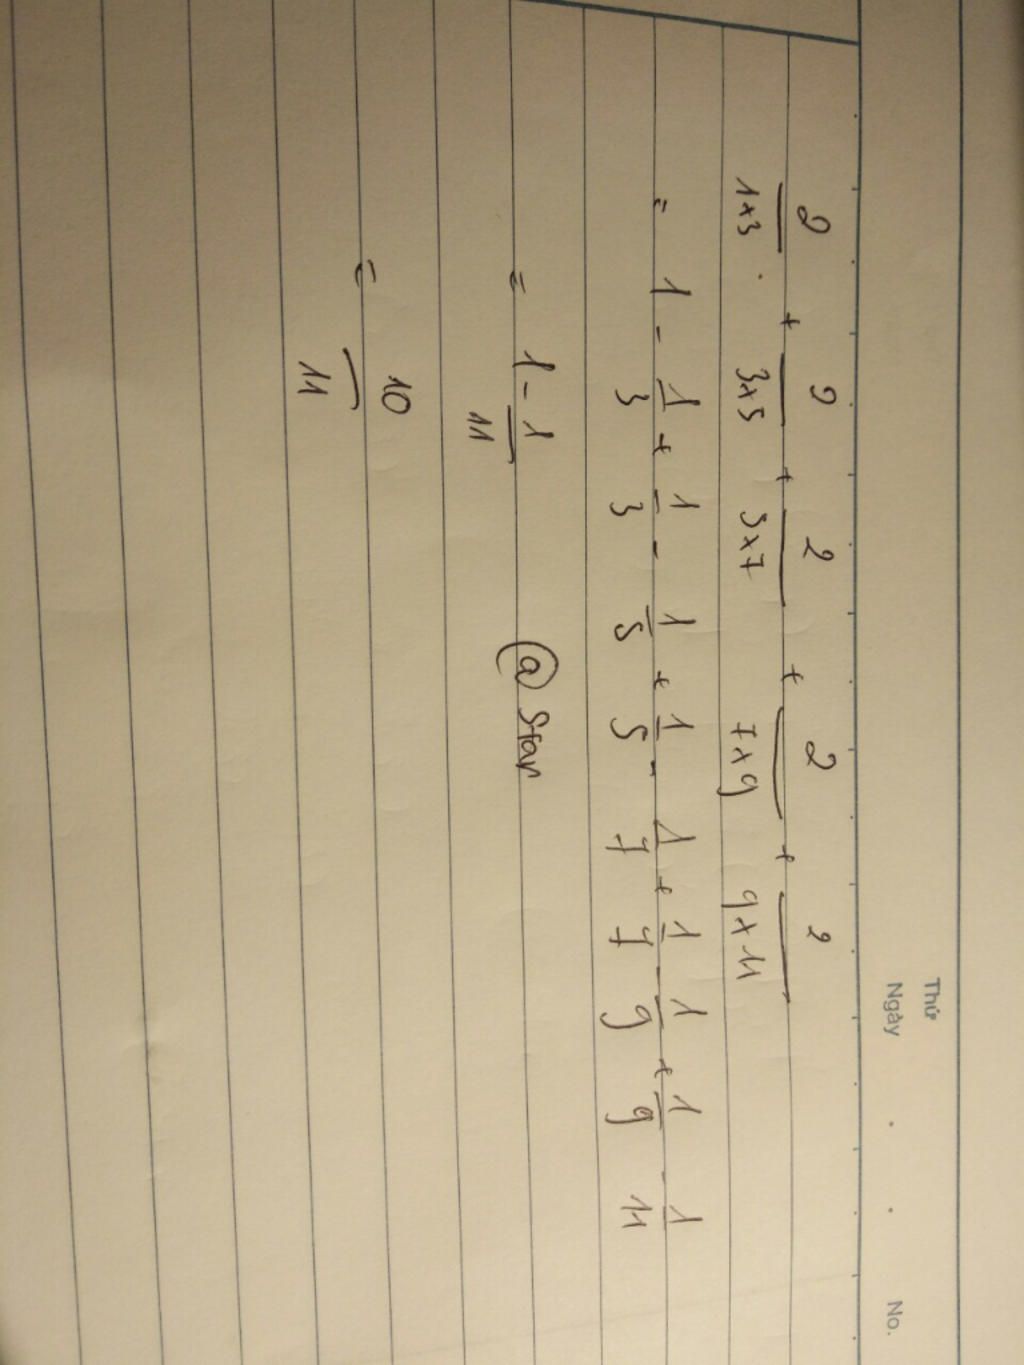 Thứ
Ngày . . No.
2/1x3 + 2/3x5 + 2/5x7 + 2/7x9 + 2/9x11
= 1 - 1/3 + 1/3 - 1/5 + 1/5 - 1/7 + 1/7 - 1/9 + 1/9 - 1/11
= 1 - 1/11 @ Star
= 10/11